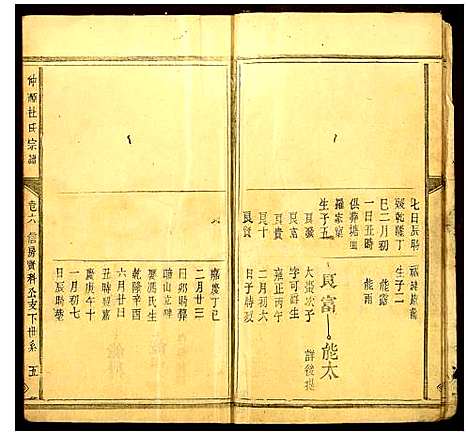 七日辰時
娶乾隆丁
巳二月初
一日丑時
俱葬塘里
羅家窠
生子五
良發
良富
良貴
良十
良賢
生子二
能露
能雨
良富
能太
大榮次子
字可祥生
雍正丙午
二月初六
日子時歿
詳後堪
嘉慶丁巳
二月廿三
日卯時葬
瞻山立碑
娶馮氏生
乾隆辛酉
六月廿日
丑時歿嘉
慶庚午十
一月初七
日辰時葬
仲源杜氏宗譜
卷六 信房寶科公支下世系 五